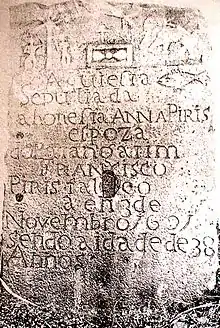 Aquiesta
Sepultada
a honesta ANNA PIRIS
espoza
do Patangatim
FRANSISCO
PIRIS faleceo
a em 3 de
Novembro 1691
sendo a idade de 38
Annos